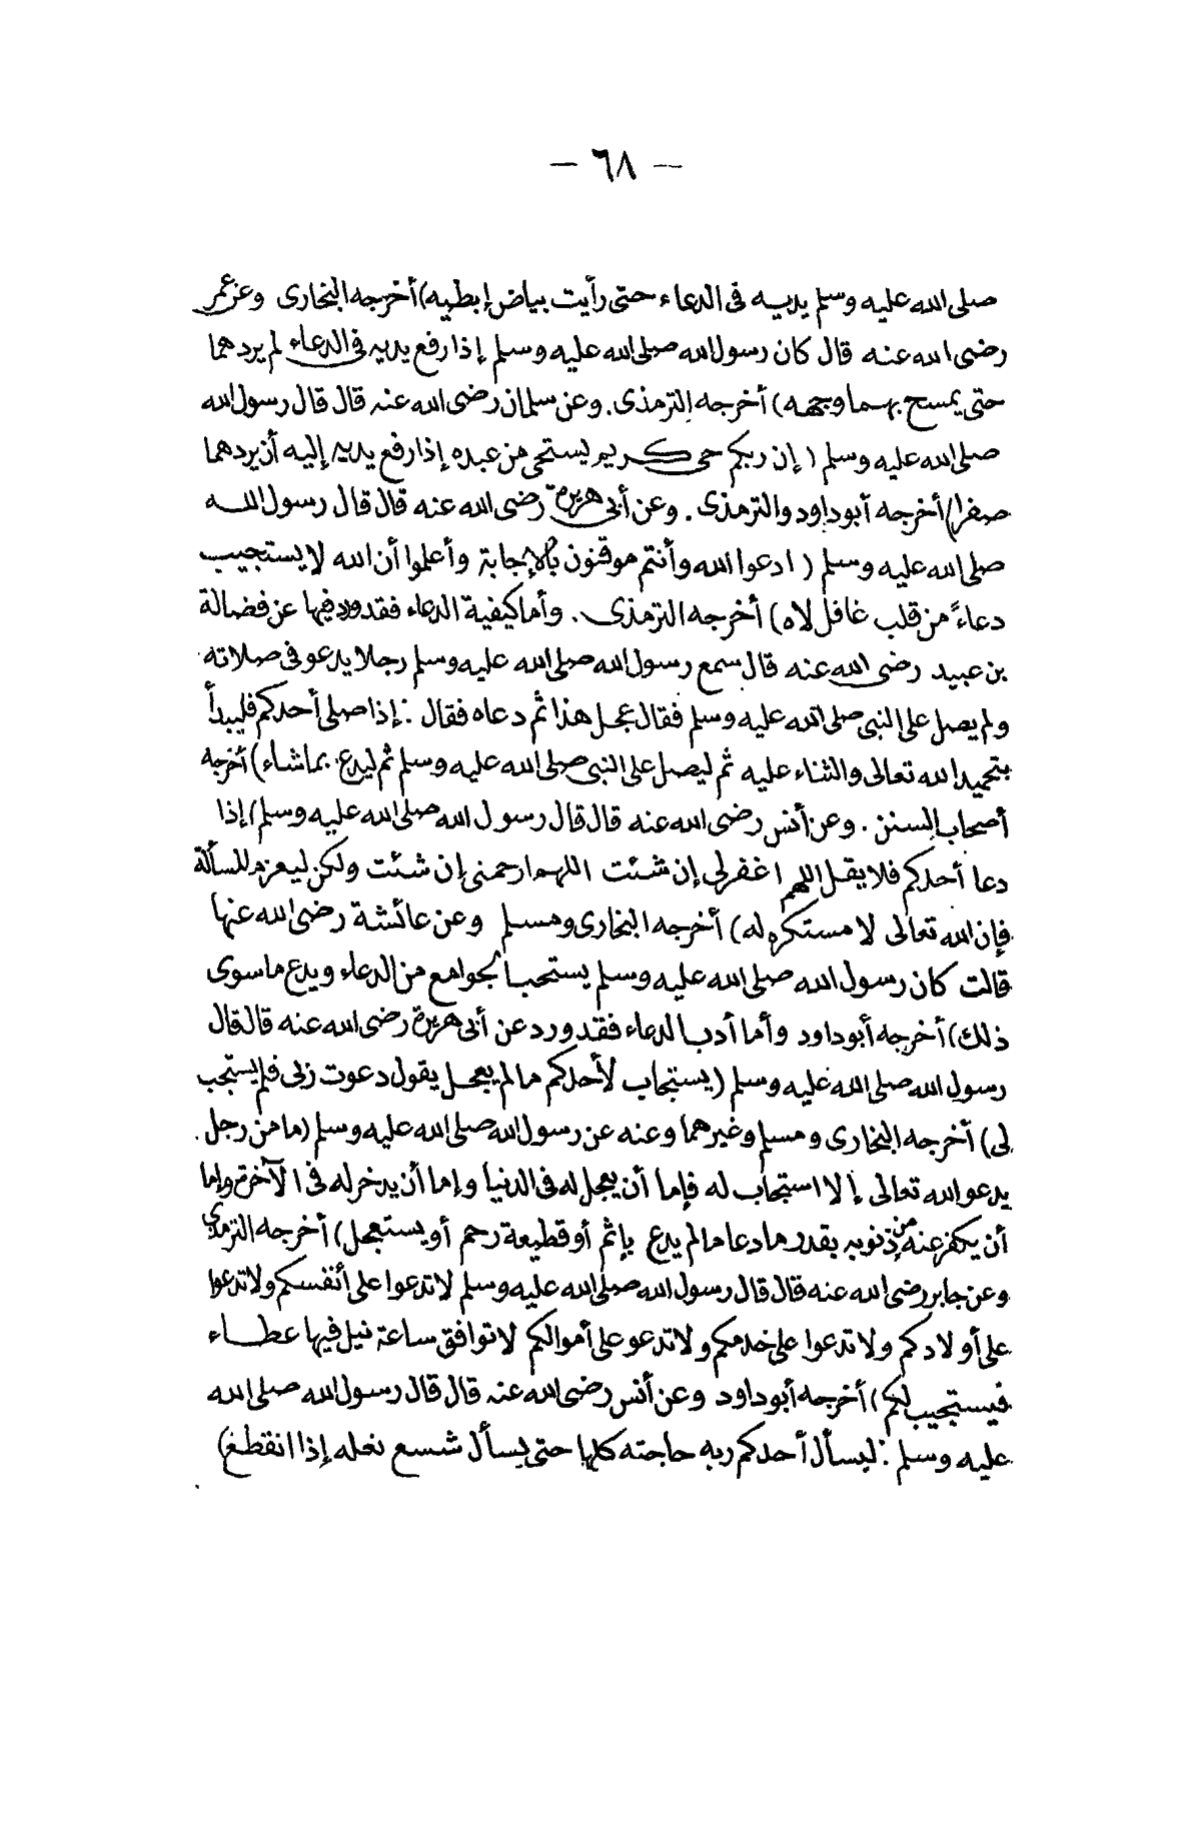 — ٦٨ —
صلى الله عليه وسلم يديه فى الدعاء حتى رأيت بياض إبطيه) أخرجه البخارى وعن عمر
رضى الله عنه قال كان رسول الله صلى الله عليه وسلم إذا رفع يديه فى الدعاء لم يردهما
حتى يمسح بهما وجهه) أخرجه الترمذى. وعن سلمان رضى الله عنه قال قال رسول الله
صلى الله عليه وسلم (إن ربكم حى كريم يستحى من عبده إذا رفع يديه إليه أن يردهما
صفرا) أخرجه أبوداود والترمذى. وعن أبى هريرة رضى الله عنه قال قال رسول الله
صلى الله عليه وسلم (ادعوا الله وأنتم موقنون بالإجابة وأعلموا أن الله لا يستجيب
دعاءً من قلب غافل لاه) أخرجه الترمذى. وأما كيفية الدعاء فقد ورد فيها عن فضالة
بن عبيد رضى الله عنه قال سمع رسول الله صلى الله عليه وسلم رجلا يدعو فى صلاته
ولم يصل على النبى صلى الله عليه وسلم فقال عجل هذا ثم دعاه فقال: إذا صلى أحدكم فليبدأ
بتحميد الله تعالى والثناء عليه ثم ليصل على النبى صلى الله عليه وسلم ثم ليدع بما شاء) أخرجه
أصحاب السنن. وعن أنس رضى الله عنه قال قال رسول الله صلى الله عليه وسلم) إذا
دعا أحدكم فلا يقل اللهم اغفرلى إن شئت اللهم ارحمنى إن شئت ولكن ليعزم للسألة
فإن الله تعالى لا مستكره له) أخرجه البخارى ومسلم وعن عائشة رضى الله عنها
قالت كان رسول الله صلى الله عليه وسلم يستحب الجوامع من الدعاء ويدع ما سوى
ذلك) أخرجه أبوداود وأما أدب الدعاء فقد ورد عن أبى هريرة رضى الله عنه قال قال
رسول الله صلى الله عليه وسلم (يستجاب لأحدكم ما لم يعجل يقول دعوت ربى فلم يستجب
لى) أخرجه البخارى ومسلم وغيرهما وعنه عن رسول الله صلى الله عليه وسلم (ما من رجل
يدعو الله تعالى إلا استجاب له فإما أن يعجل له فى الدنيا وإما أن يدخر له فى الآخرة وإما
أن يكفر عنه من ذنوبه بقدر ما دعا ما لم يدع بإثم أو قطيعة رحم أو يستعجل) أخرجه الترمذى
وعن جابر رضى الله عنه قال قال رسول الله صلى الله عليه وسلم لا تدعوا على أنفسكم ولا تدعوا
على أولادكم ولا تدعوا على خدمكم ولا تدعو على أموالكم لا توافق ساعة نيل فيها عطاء
فيستجيب لكم) أخرجه أبوداود وعن أنس رضى الله عنه قال قال رسول الله صلى الله
عليه وسلم: ليسأل أحدكم ربه حاجته كلها حتى يسأل شسع نعله إذا انقطع)